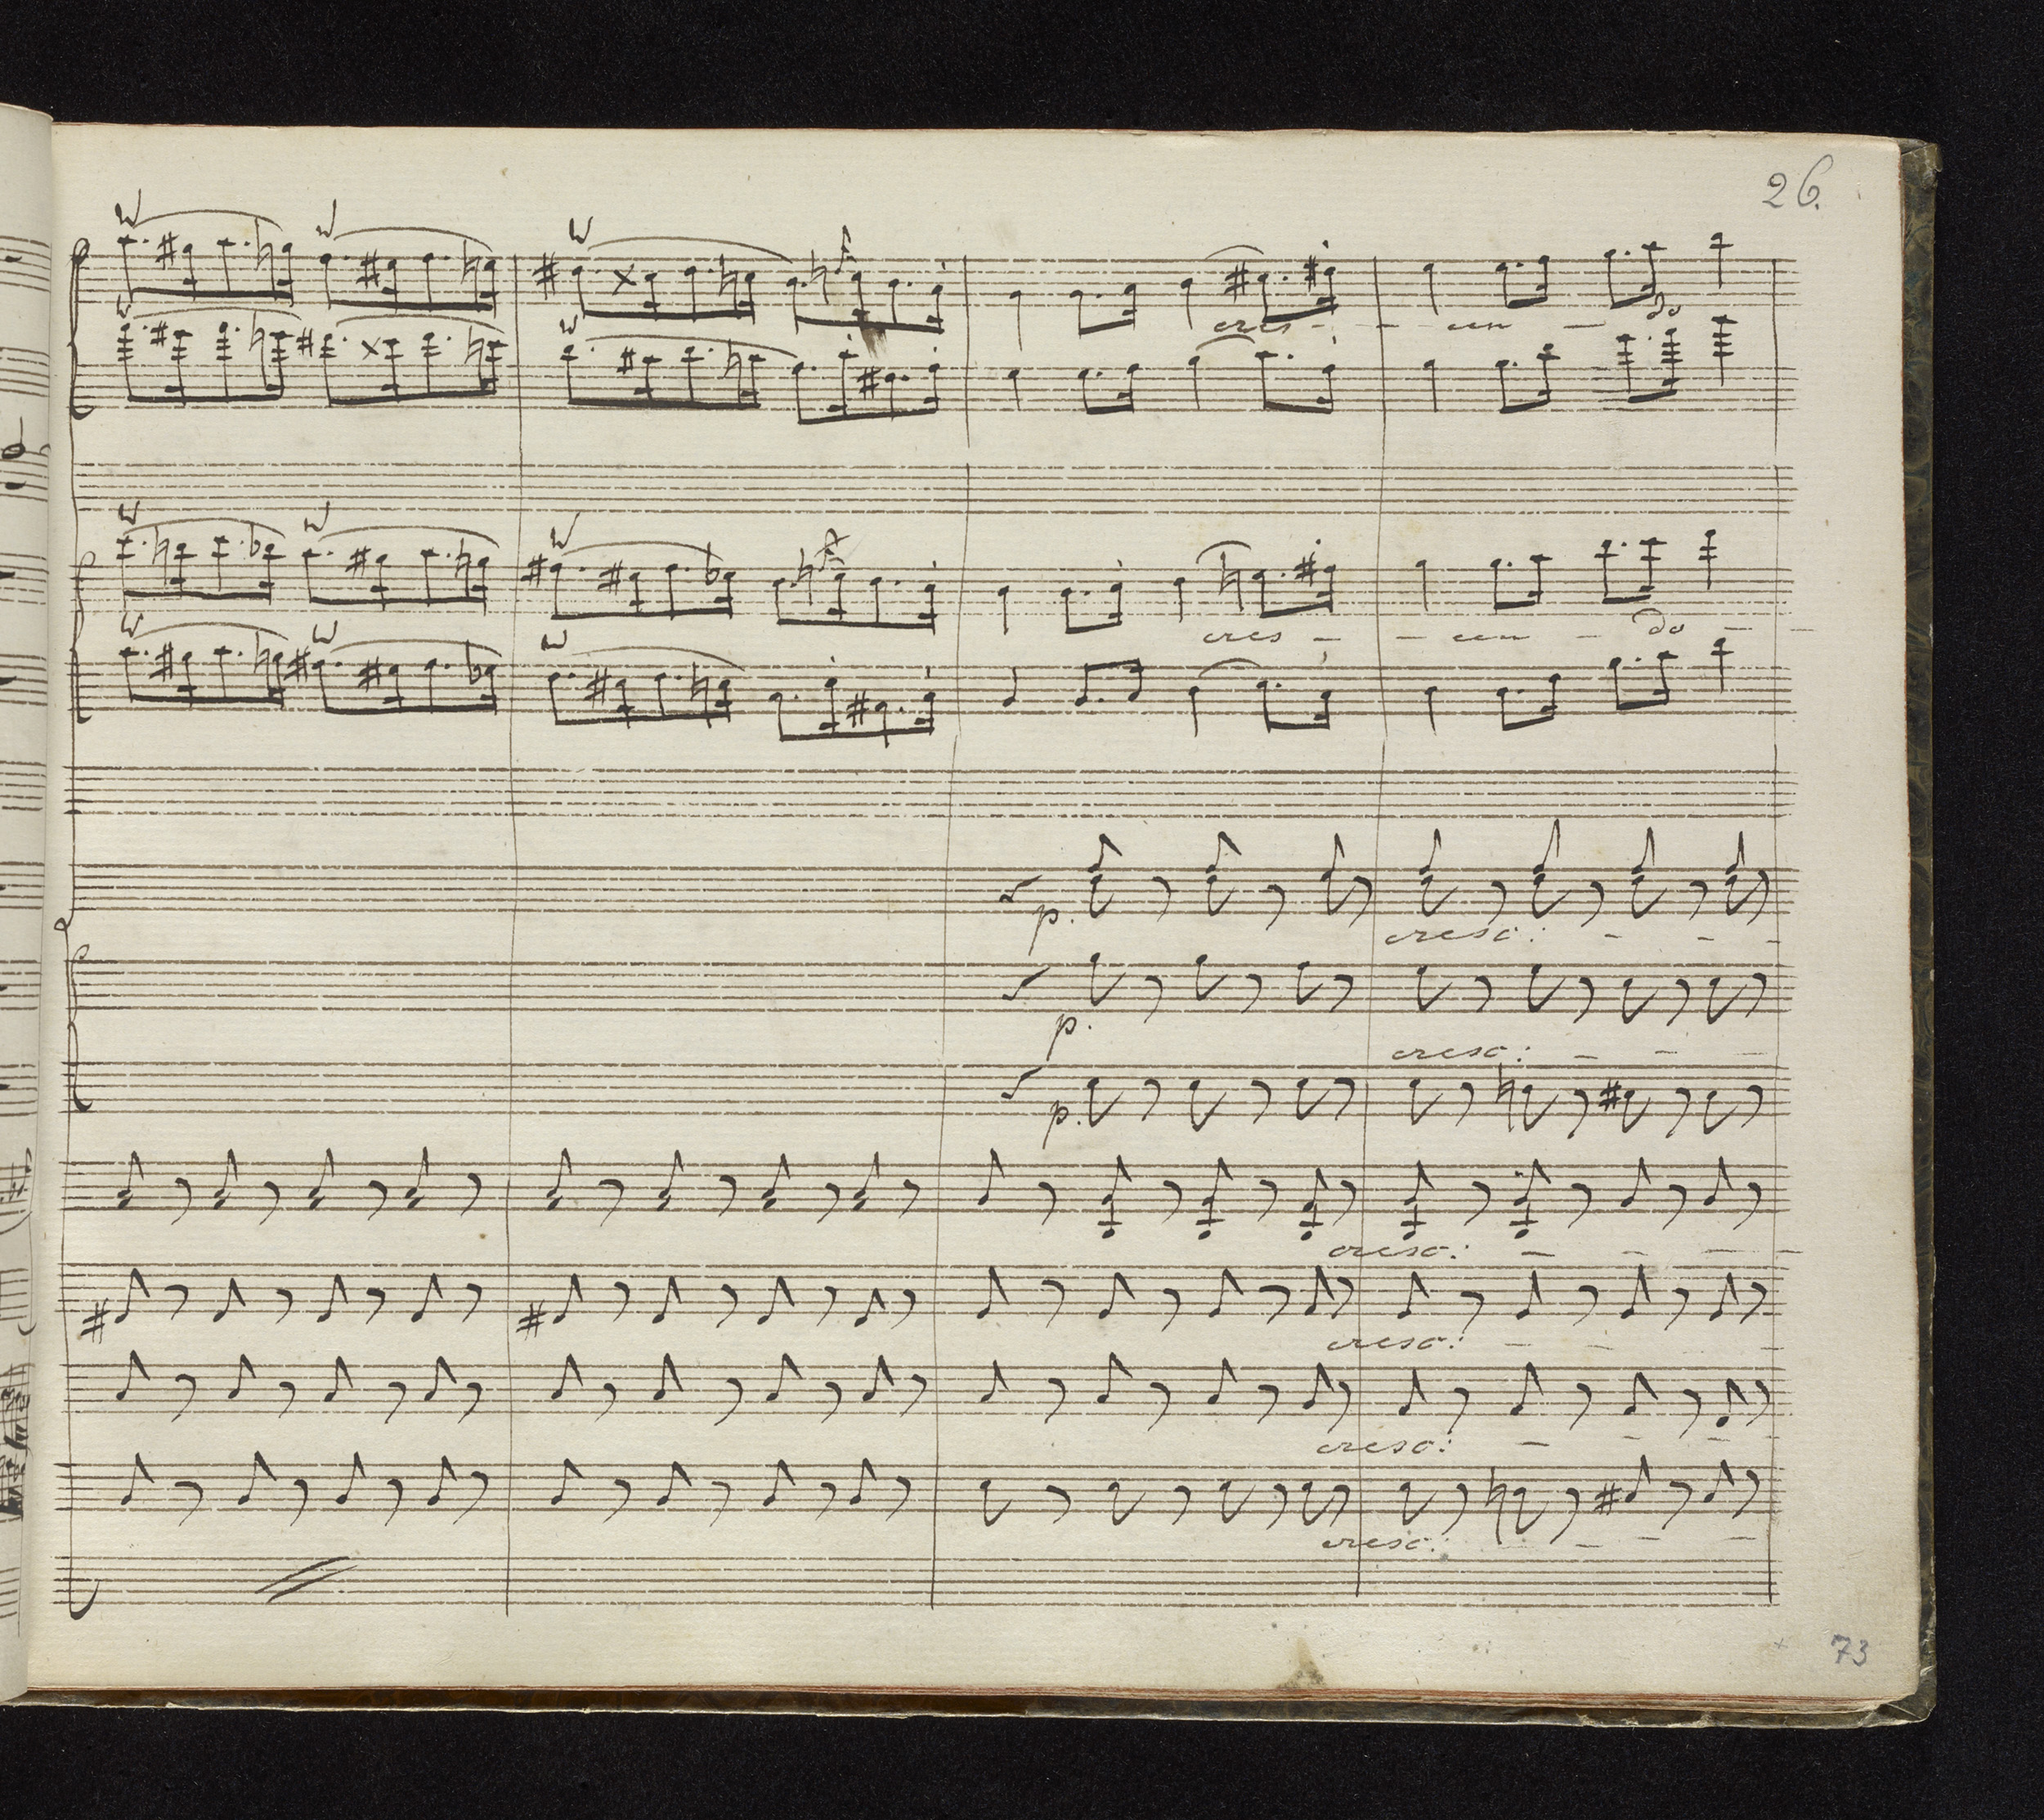 26.
cres - - - cen - do
cres - - cen - do - -
p.
cresc: - - -
p.
cresc: - - -
p.
cresc: - - - -
cresc: - - -
cresc: - - -
cresc: - - -
73